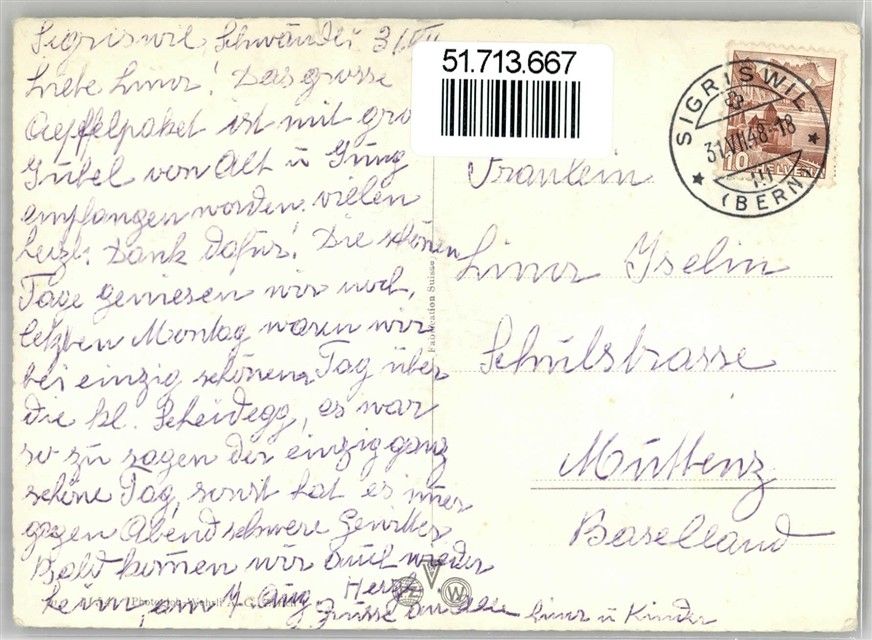 Sigriswil, Schwanden 31.VII
Liebe Lina! Das grosse
Aepfelpaket ist mit gro
Jubel von Alt u Jung
empfangen worden. vielen
herzl. Dank dafür! Die schönen
Tage geniesen wir noch,
letzten Montag waren wir
bei einzig schönem Tag über
die kl. Scheidegg, es war
so zu sagen der einzig ganz
schöne Tag, sonst hat es imer
gegen Abend schwere Gewitter
Bald komen wir auch wieder
heim, am 7. Aug. Herzl.
Grüsse an alle Lina u Kinder
51.713.667
SIGRISWIL
31.VII.48.-18
(BERN)
10
HELVETIA
Fräulein
Lina Iselin
Schulstrasse
Muttenz
Baselland
Fabrication Suisse